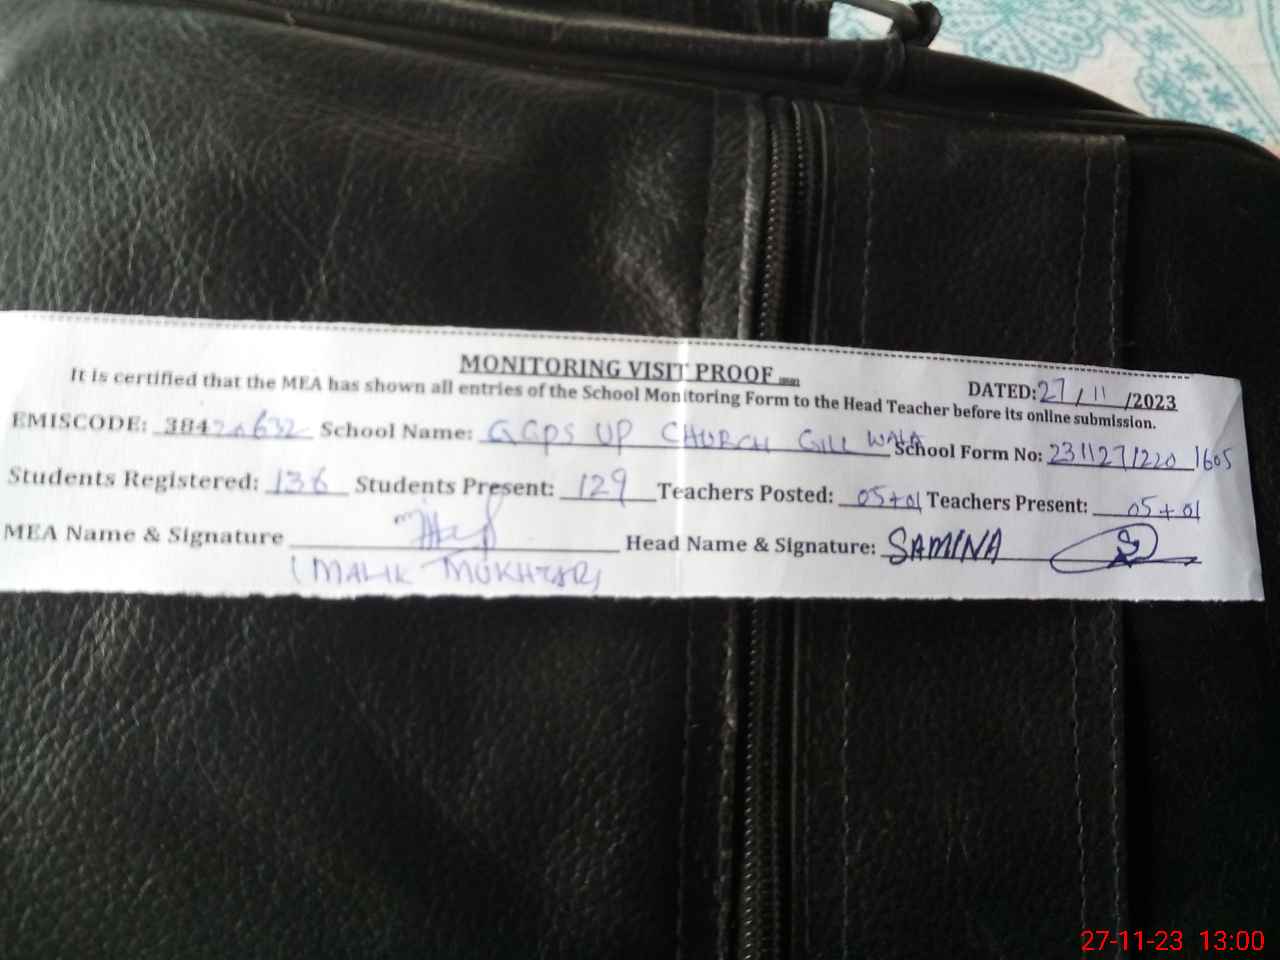 MONITORING VISIT PROOF
DATED: 27 / 11 /2023
It is certified that the MEA has shown all entries of the School Monitoring Form to the Head Teacher before its online submission.
EMISCODE: 38420632 School Name: GGPS UP CHURCH GILL WALA School Form No: 2311271220 1605
Students Registered: 136 Students Present: 129 Teachers Posted: 05+01 Teachers Present: 05+01
MEA Name & Signature Head Name & Signature: SAMINA
(MALIK MUKHTAR)
27-11-23 13:00